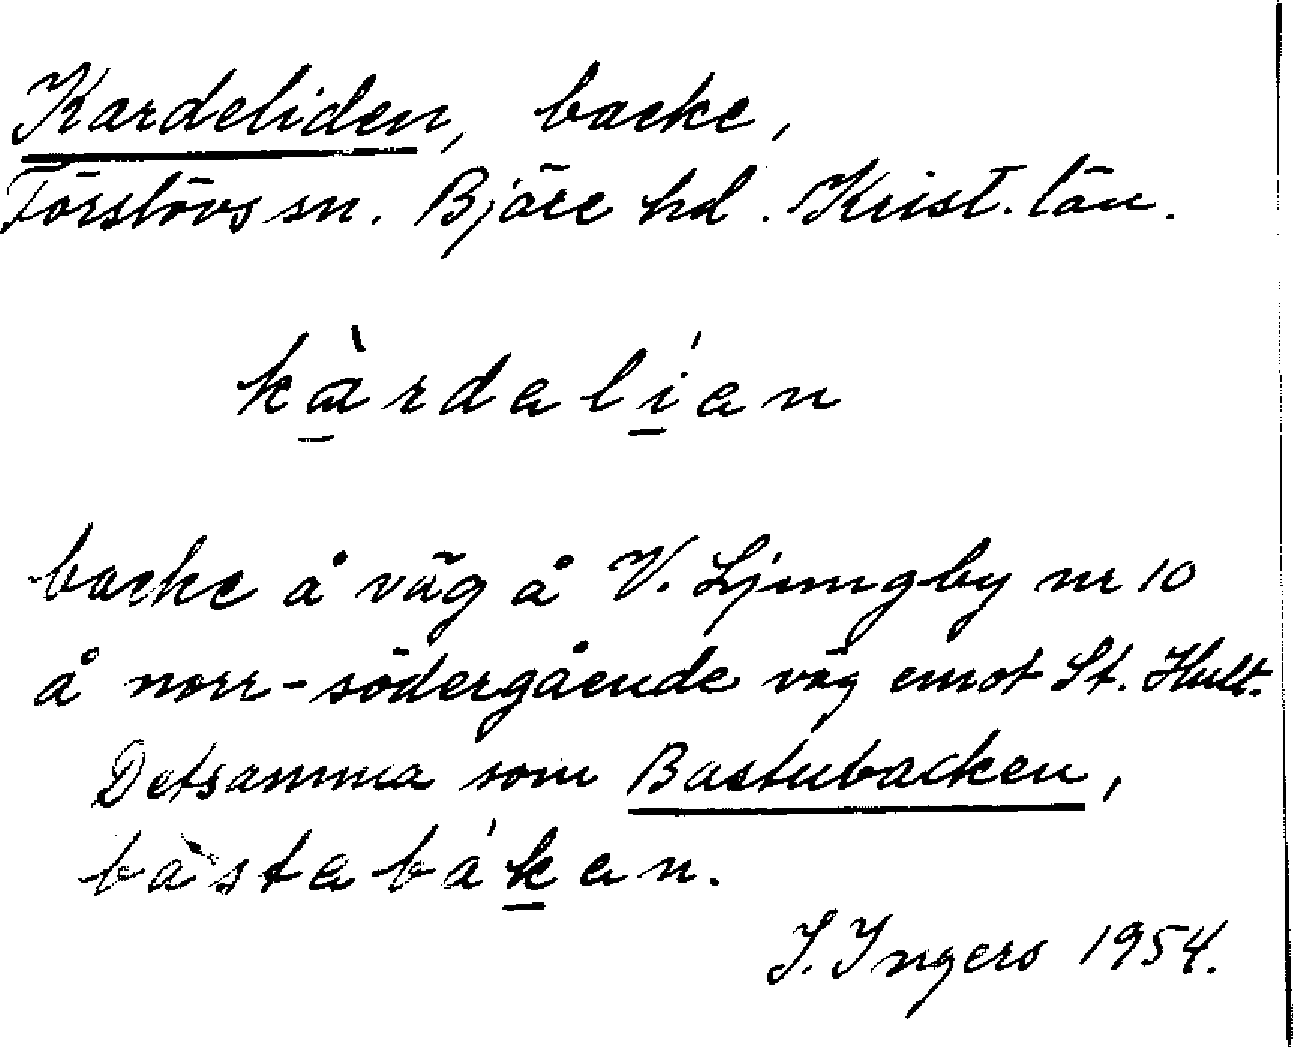 Kardeliden, backe,
Förslövs sn. Bjäre hd. Krist. län.
kàrdəlíən
backe å väg å V. Ljungby nr 10
å norr-södergående väg emot St. Hult.
Detsamma som Bastubacken,
bàstəbákən.
I. Ingers 1954.